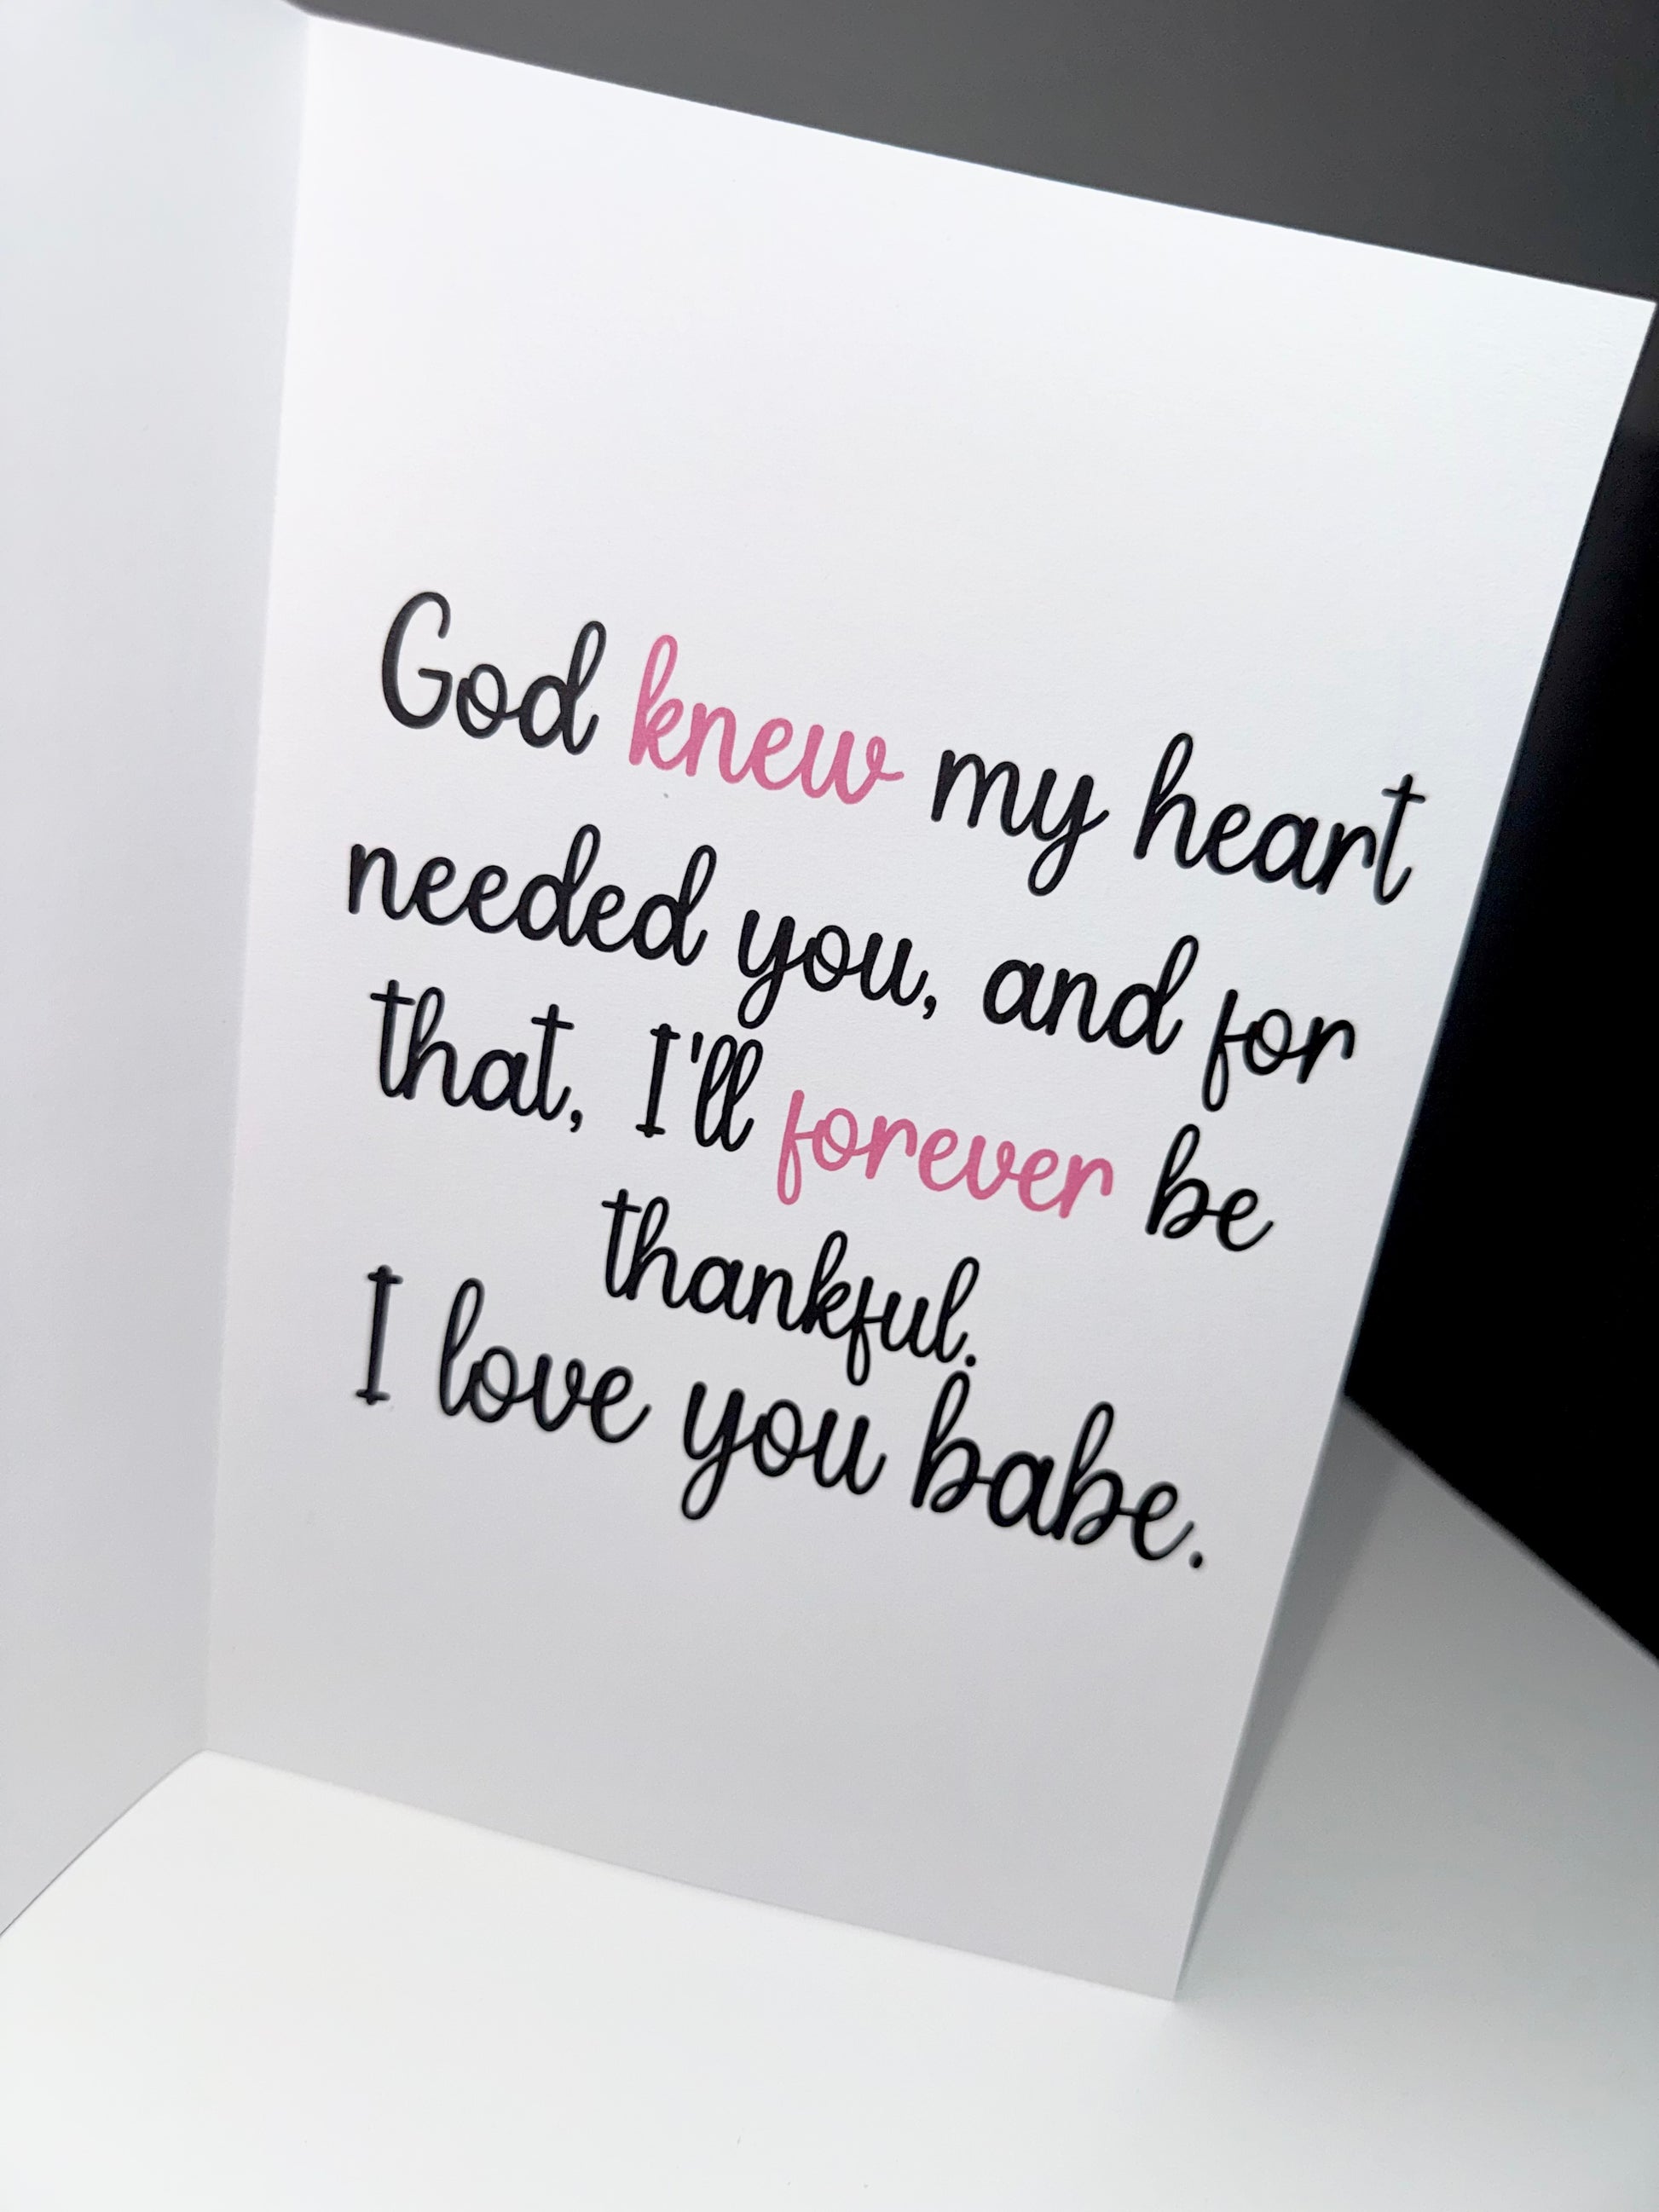 God knew my heart
needed you, and for
that, I'll forever be
thankful.
I love you babe.